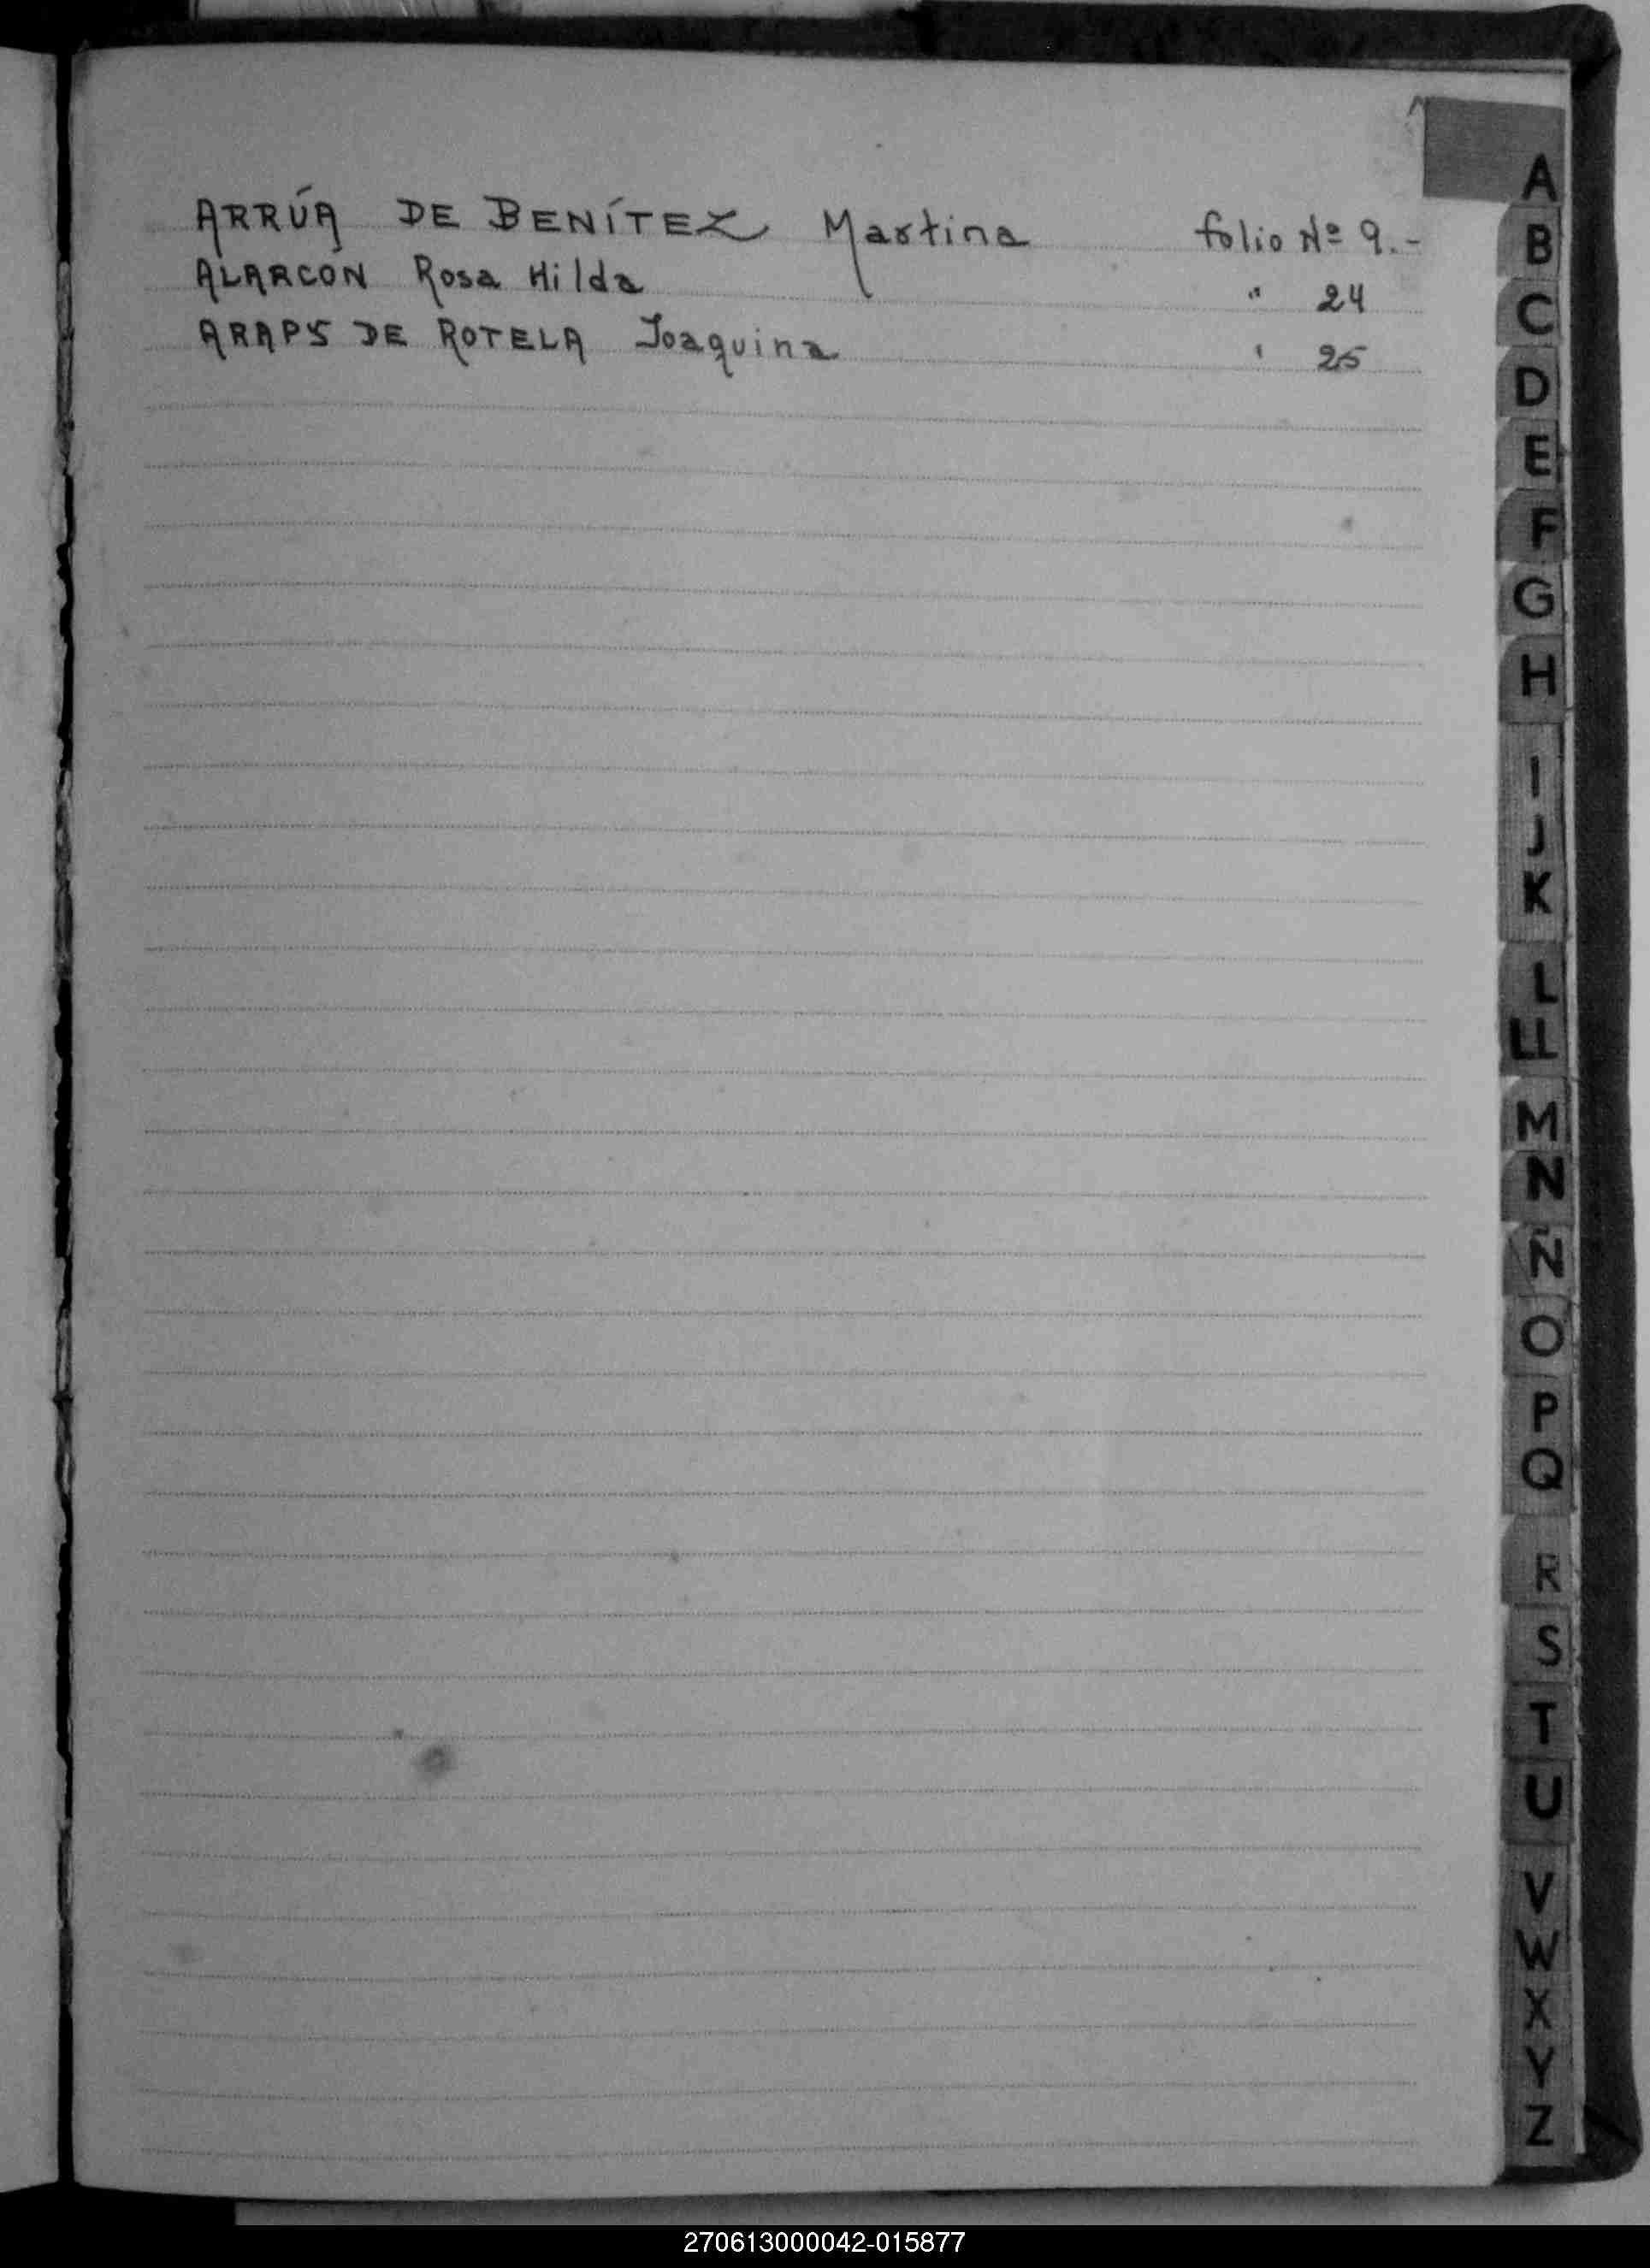 ARRÚA DE BENÍTEZ Martina folio Nº 9.-
ALARCÓN Rosa Hilda " 24
ARAPS DE ROTELA Joaquina ' 25
A
B
C
D
E
F
G
H
I
J
K
L
LL
M
N
Ñ
O
P
Q
R
S
T
U
V
W
X
Y
Z
270613000042-015877